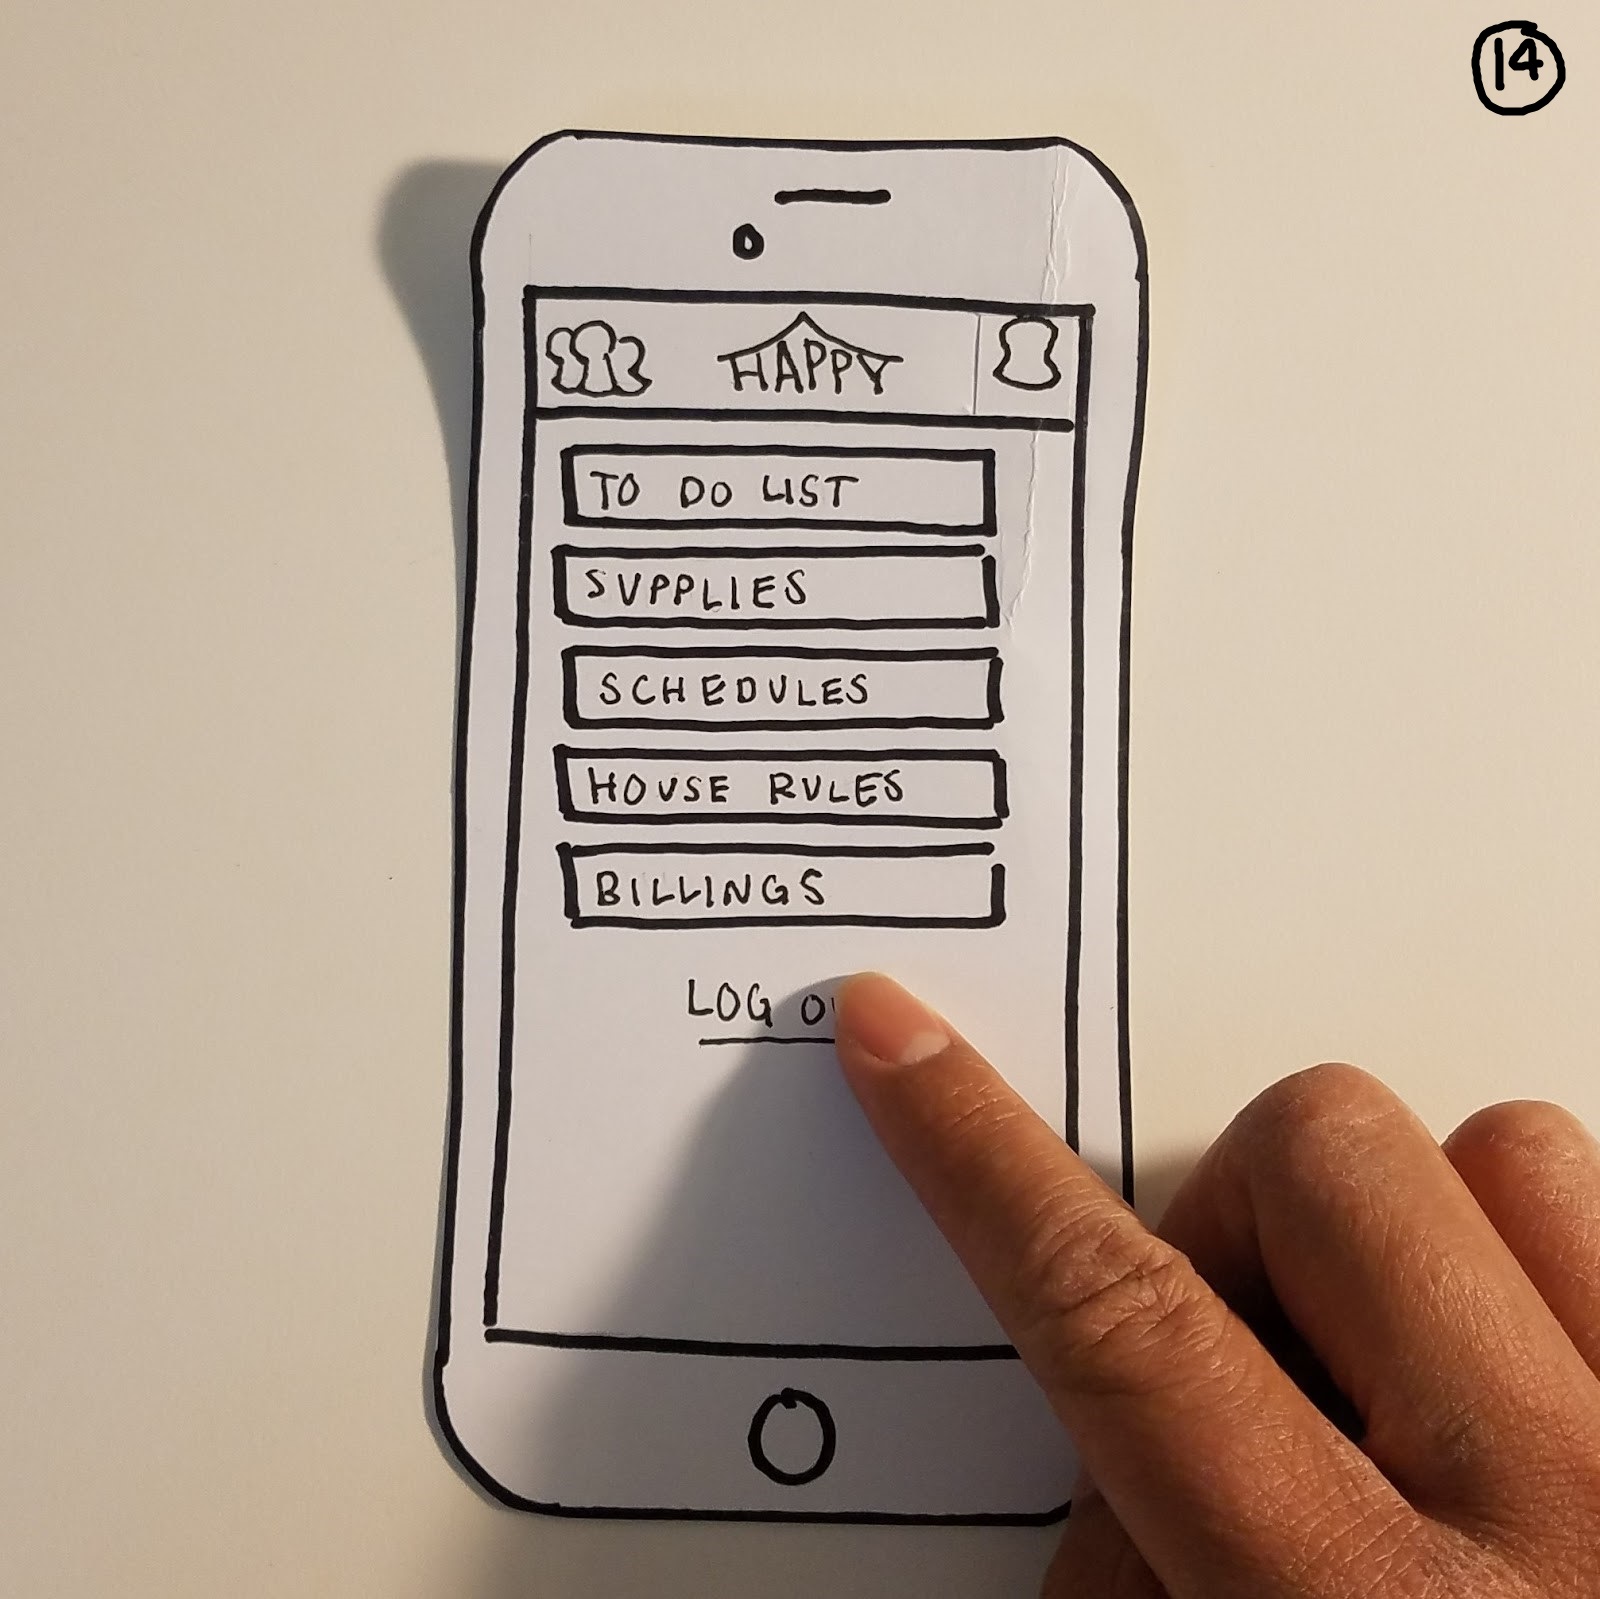 14
HAPPY
TO DO LIST
SUPPLIES
SCHEDULES
HOUSE RULES
BILLINGS
LOG